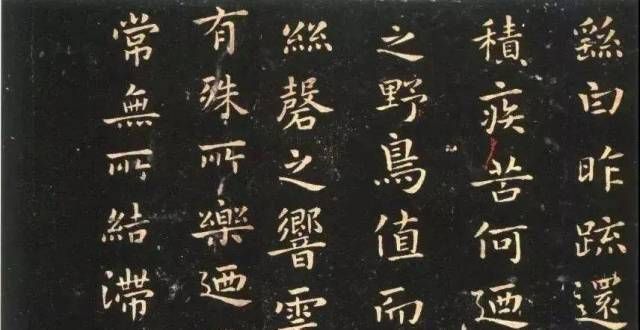 繇白昨疏還
積疾苦何迺
之野鳥值而
絲磬之響雲
有殊所樂迺
常無所結滯